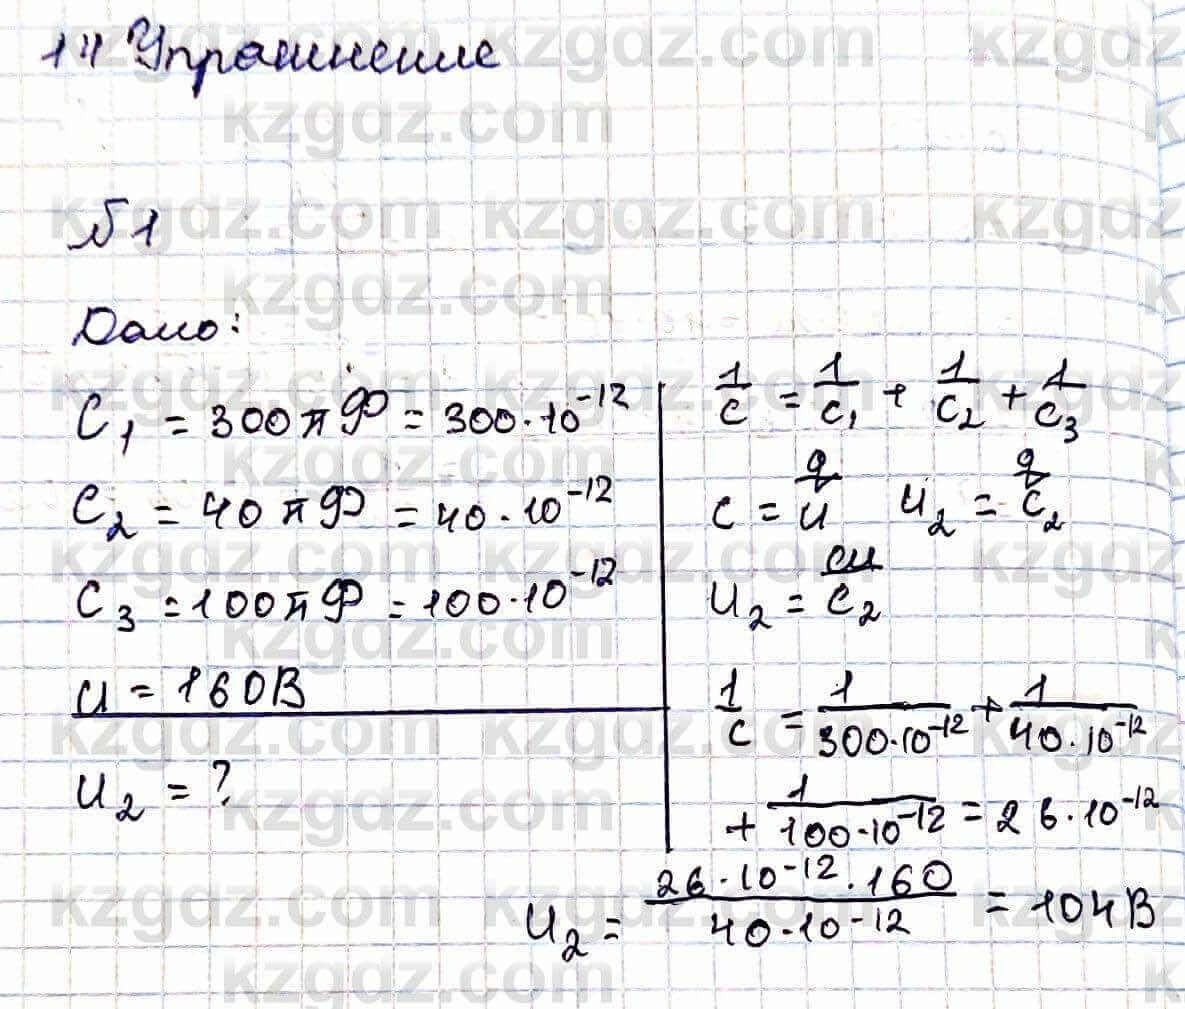 14 Упражнение
№1
Дано:
C₁ = 300 пФ = 300·10⁻¹²
C₂ = 40 пФ = 40·10⁻¹²
C₃ = 100 пФ = 100·10⁻¹²
U = 160 В
U₂ = ?
1/C = 1/C₁ + 1/C₂ + 1/C₃
C = q/U U₂ = q/C₂
U₂ = CU/C₂
1/C = 1/300·10⁻¹² + 1/40·10⁻¹²
+ 1/100·10⁻¹² = 26·10⁻¹²
U₂ = 26·10⁻¹²·160/40·10⁻¹² = 104 В
kzgdz.com